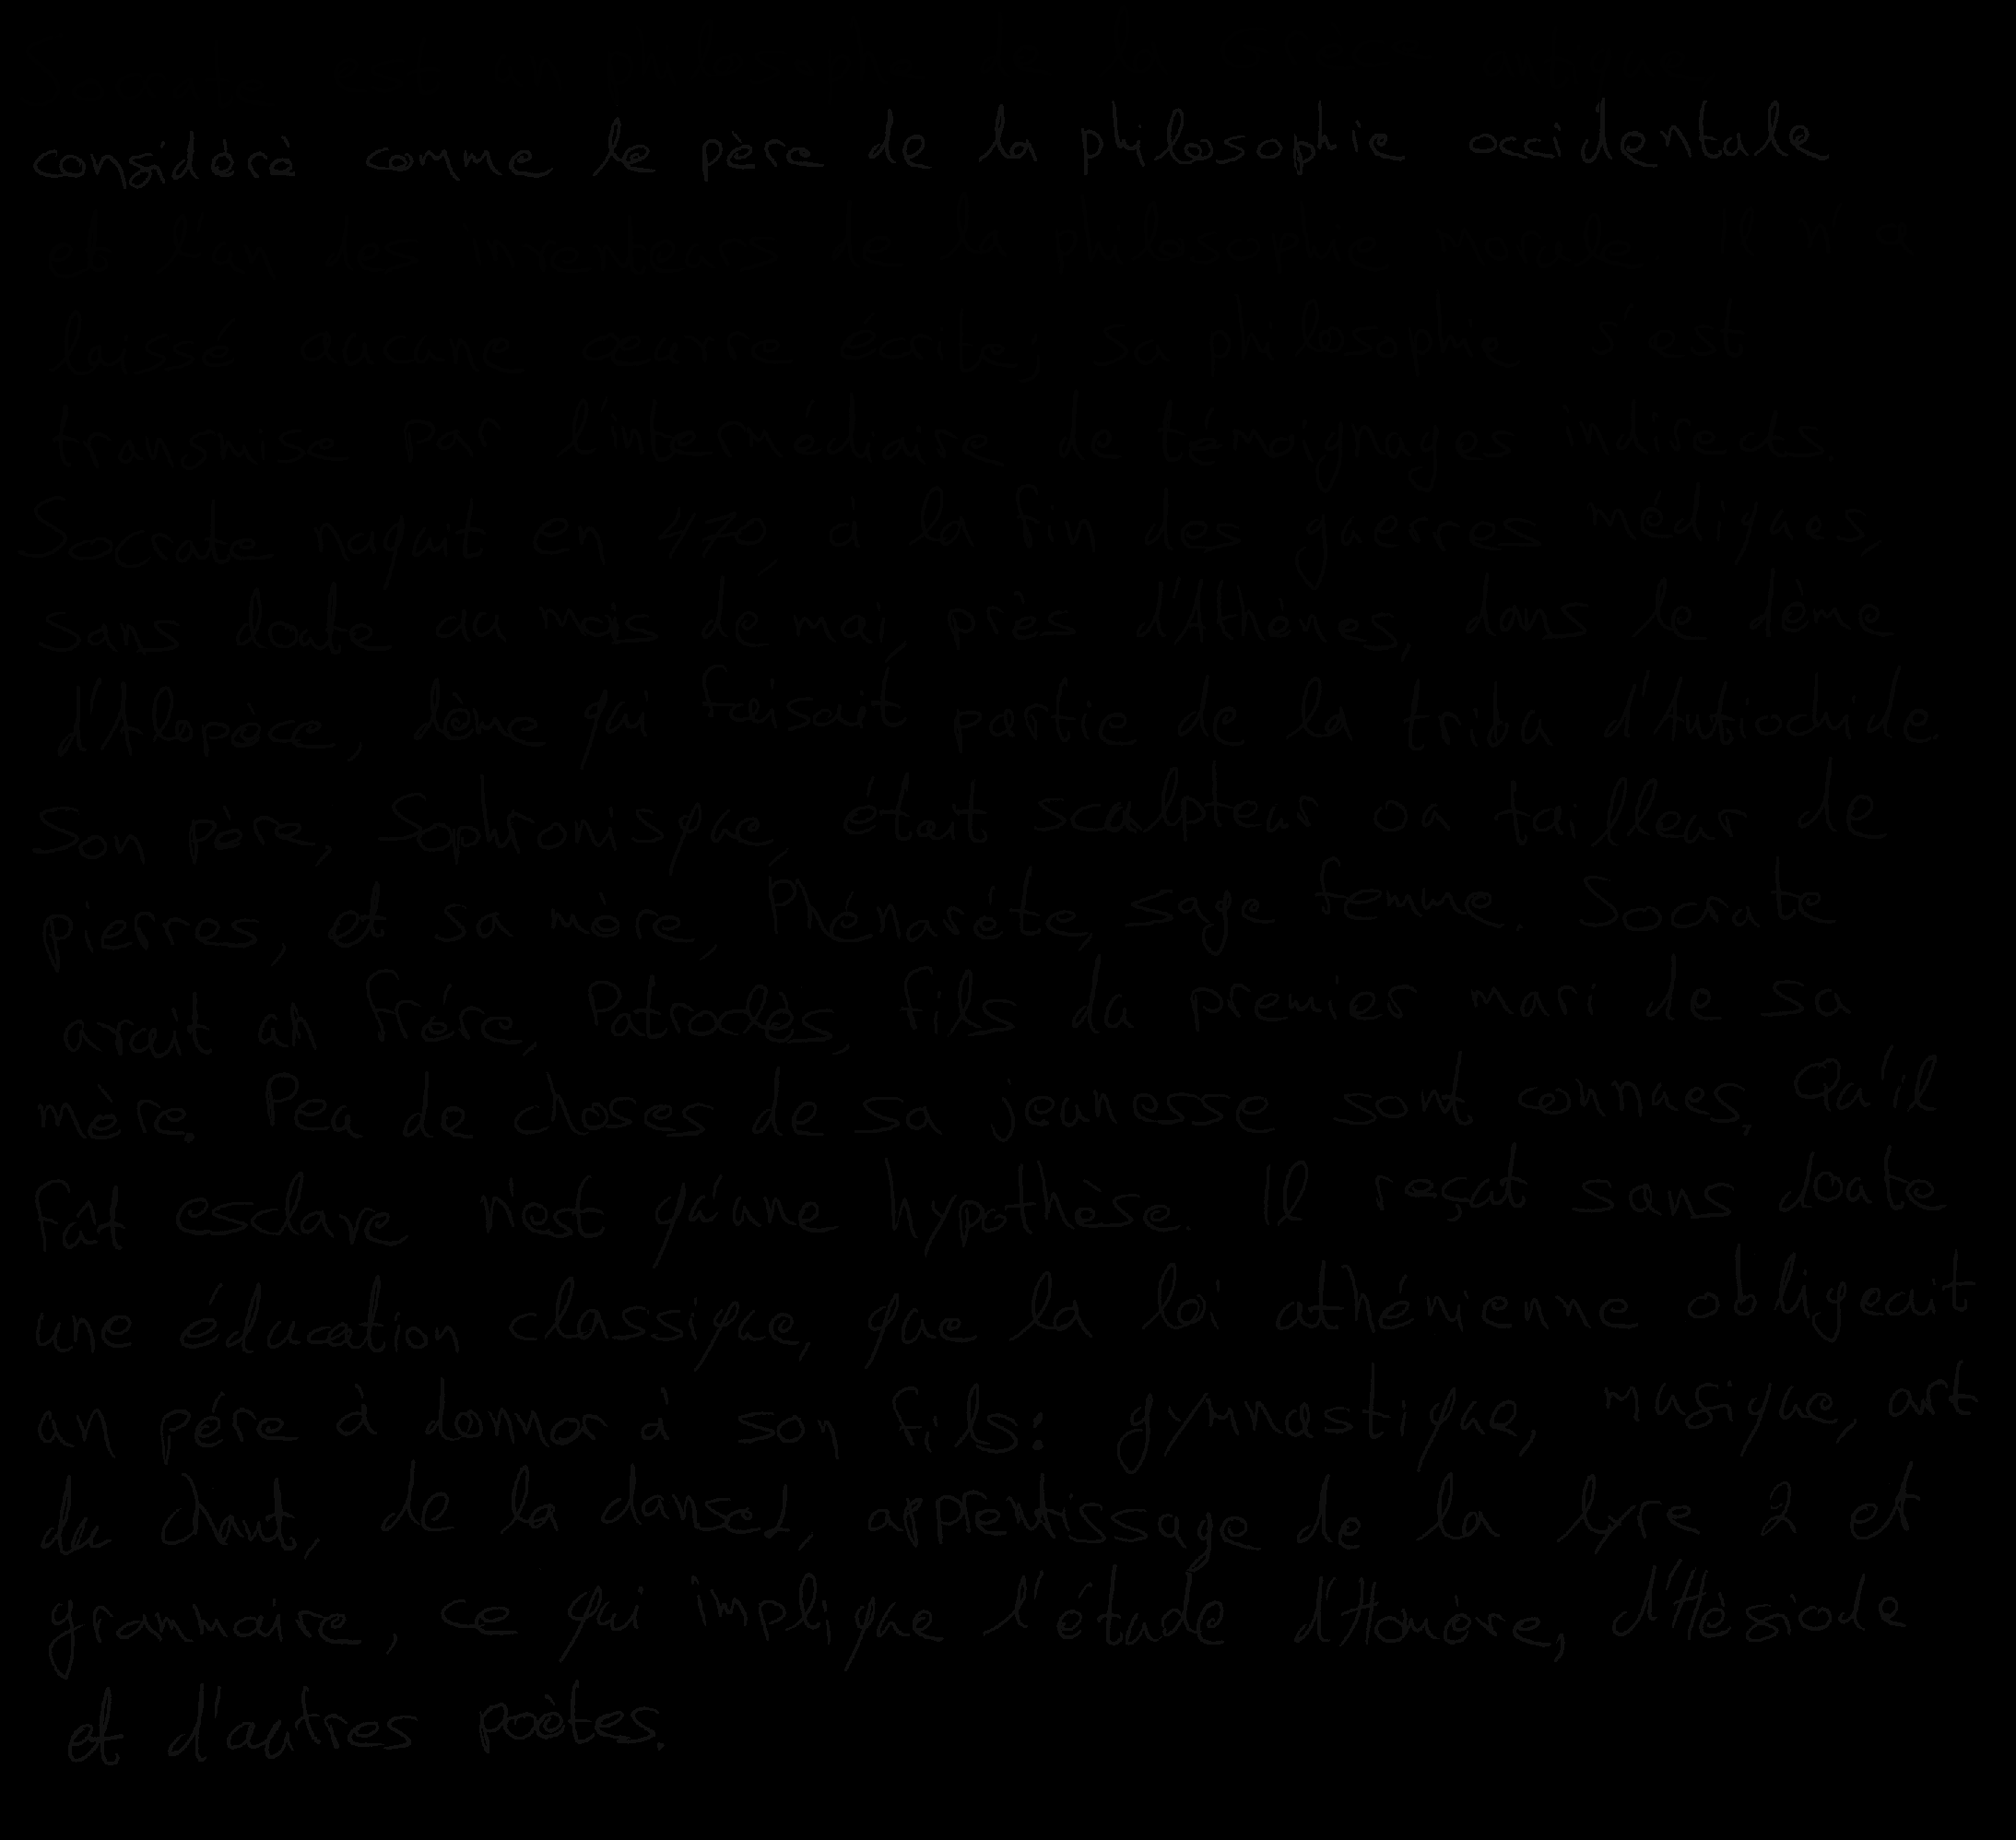 considéré comme le père de la philosophie occidentale
et l'un des inventeurs de la philosophie morale Il n'a
laissé aucune œuvre écrite; sa philosophie s'est
transmise par l'intermédiaire de témoignages indirects.
Socrate naquit en 470, à la fin des guerres médiques,
sans doute au mois de mai, près d'Athènes, dans le dème
d'Alopèce, dème qui faisait partie de la tribu d'Antiochide
Son père, Sophronisque, était sculpteur ou tailleur de
pierres, et sa mère, Phénarète, sage femme. Socrate
avait un frère, Patroclès, fils du premier mari de sa
mère. Peu de choses de sa jeunesse sont connues, Qu'il
fût esclave n'est qu'une hypothèse. Il reçut sans doute
une éducation classique, que la loi athénienne obligeait
un père à donner à son fils: gymnastique, musique, art
du chant, de la danse1, apprentissage de la lyre 2 et
grammaire, ce qui implique l'étude d'Homère, d'Hésiode
et d'autres poètes.